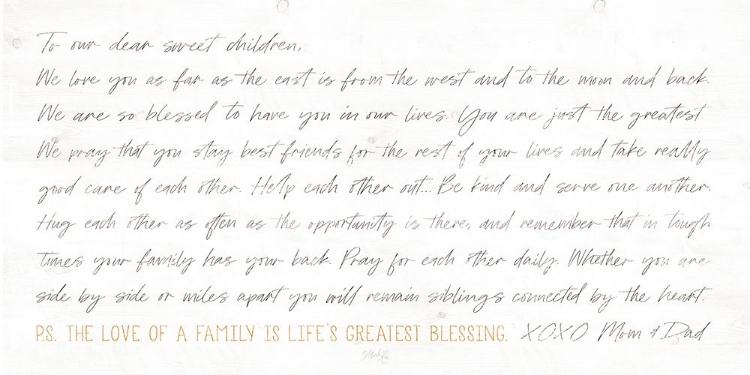 To our dear sweet children,
We love you as far as the east is from the west and to the moon and back.
We are so blessed to have you in our lives. You are just the greatest.
We pray that you stay best friends for the rest of your lives and take really
good care of each other. Help each other out... Be kind and serve one another.
Hug each other as often as the opportunity is there, and remember that in tough
times your family has your back. Pray for each other daily. Whether you are
side by side or miles apart you will remain siblings connected by the heart.
P.S. THE LOVE OF A FAMILY IS LIFE'S GREATEST BLESSING. XOXO Mom & Dad